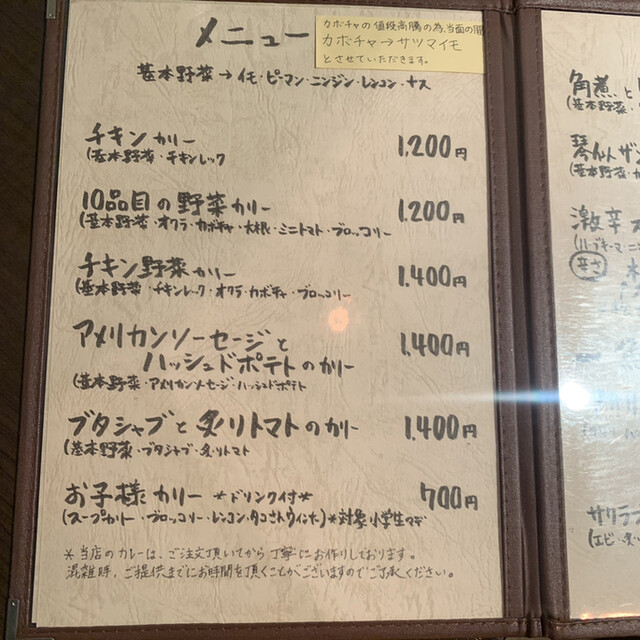 メニュー
カボチャの値段高騰の為、当面の間
カボチャ→サツマイモ
とさせていただきます。
基本野菜→イモ・ピーマン・ニンジン・レンコン・ナス
チキンカリー 1,200円
(基本野菜・チキンレッグ
10品目の野菜カリー 1,200円
(基本野菜・オクラ・カボチャ・大根・ミニトマト・ブロッコリー
チキン野菜カリー 1,400円
(基本野菜・チキンレッグ・オクラ・カボチャ・ブロッコリー
アメリカンソーセージと
ハッシュドポテトのカリー 1,400円
(基本野菜・アメリカンソーセージ・ハッシュドポテト
ブタシャブと炙りトマトのカリー 1,400円
(基本野菜・ブタシャブ・炙りトマト
お子様カリー *ドリンク付* 700円
(スープカリー・ブロッコリー・レンコン・タコさんウインナー)*対象小学生マデ
*当店のカレーは、ご注文頂いてから丁寧にお作りしております。
混雑時、ご提供までにお時間を頂くことがございますのでご了承ください。
角煮と
(基本野菜・
(基本野菜・カ
激辛
辛さ
サクラ
(エビ・